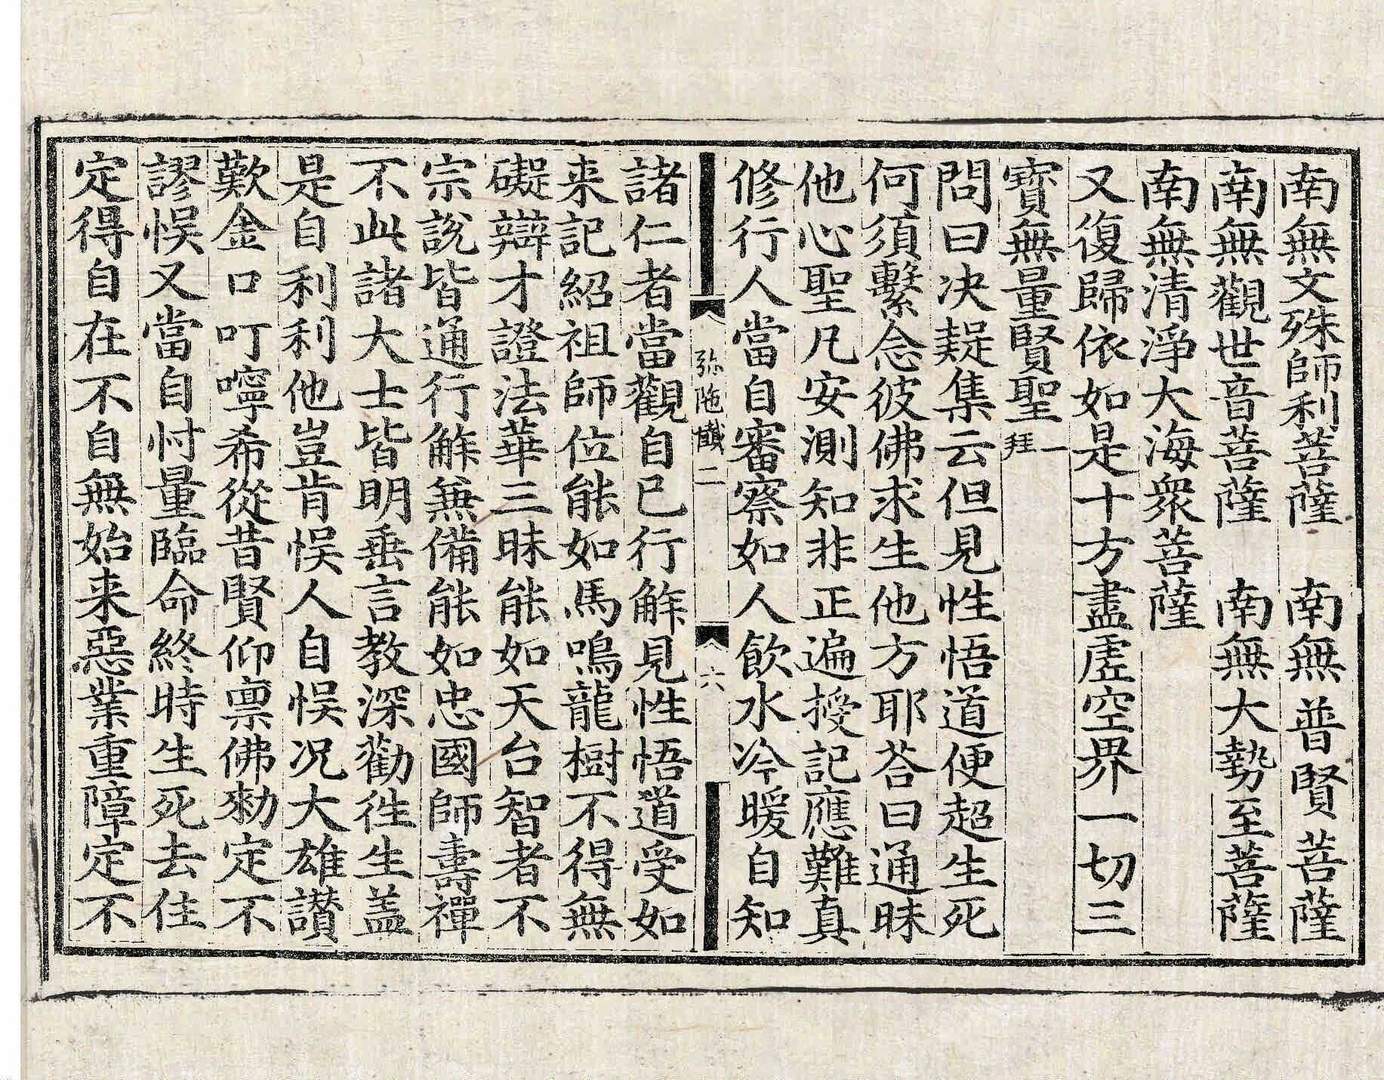 南無文殊師利菩薩　南無普賢菩薩
南無觀世音菩薩　南無大勢至菩薩
南無清淨大海衆菩薩
又復歸依如是十方盡虛空界一切三
寶無量賢聖一拜
問曰決疑集云但見性悟道便超生死
何須繫念彼佛求生他方耶荅曰通昧
他心聖凡安測知非正遍授記應難真
修行人當自審察如人飲水冷暖自知
弥陁懺二　六
諸仁者當觀自已行解見性悟道受如
来記紹祖師位能如馬鳴龍樹不得無
礙辯才證法華三昧能如天台智者不
宗說皆通行解兼備能如忠國師壽禪
不此諸大士皆明垂言教深勸徃生盖
是自利利他豈肯悞人自悞况大雄讃
歎金口叮嚀希從昔賢仰禀佛勑定不
謬悞又當自忖量臨命終時生死去住
定得自在不自無始来惡業重障定不